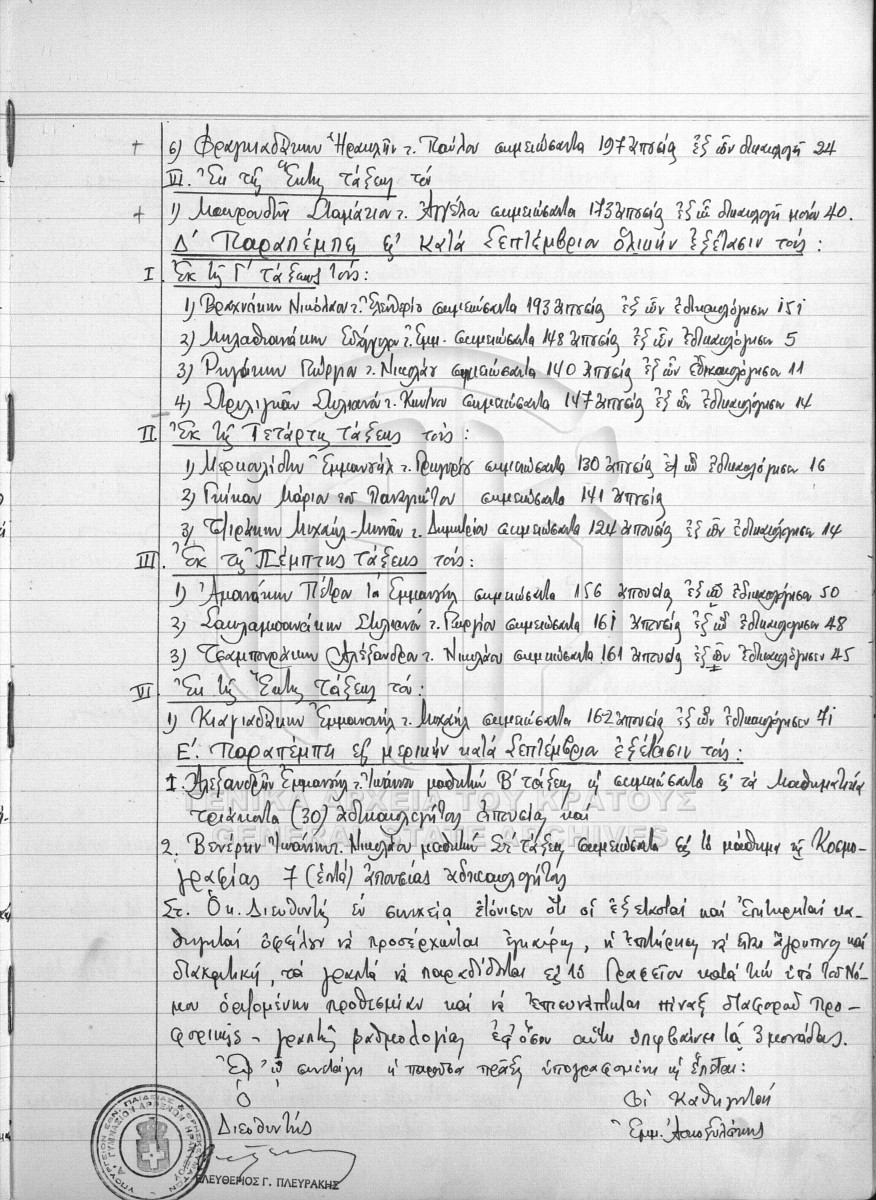 6) Φραγκιαδάκην Ἡρακλῆν τ. Παύλου σημειώσαντα 197 ἀπουσίας ἐξ ὧν δικαιολογ. 24
VI. Ἐκ τῆς Ἕκτης τάξεως τόν
1) Μαυρουδῆν Σταμάτιον τ. Ἀγγέλου σημειώσαντα 173 ἀπουσίας ἐξ ὧν δικαιολογ. μόνον 40.
Δ' Παραπέμπει εἰς κατά Σεπτέμβριον ὁλικήν ἐξέτασιν τούς:
I. Ἐκ τῆς Γ' τάξεως τούς:
1) Βραχνάκην Νικόλαον τ. Ἐλευθερίου σημειώσαντα 193 ἀπουσίας ἐξ ὧν ἐδικαιολόγησεν 151
2) Μηλαθιανάκην Εὐάγγελον τ. Εμμ. σημειώσαντα 148 ἀπουσίας ἐξ ὧν ἐδικαιολόγησεν 5
3) Ρηγάκην Γεώργιον τ. Νικολάου σημειώσαντα 140 ἀπουσίας ἐξ ὧν ἐδικαιολόγησεν 11
4) Στυλιανόν τ. Κων/νου σημειώσαντα 147 ἀπουσίας ἐξ ὧν ἐδικαιολόγησεν 14
II. Ἐκ τῆς Τετάρτης τάξεως τούς:
1) Μερκουλίδην Ἐμμανουήλ τ. Γρηγορίου σημειώσαντα 130 ἀπουσίας ἐξ ὧν ἐδικαιολόγησεν 16
2) Γκίκαν Μάριον τοῦ Παναγιώτου σημειώσαντα 141 ἀπουσίας
3) Τζιράκην Μιχαήλ-Μηνᾶν τ. Δημητρίου σημειώσαντα 124 ἀπουσίας ἐξ ὧν ἐδικαιολόγησεν 14
III. Ἐκ τῆς Πέμπτης τάξεως τούς:
1) Ἀμανάκην Πέτρον τοῦ Ἐμμανουήλ σημειώσαντα 156 ἀπουσίας ἐξ ὧν ἐδικαιολόγησεν 50
2) Σακλαμπανάκην Στυλιανόν τ. Γεωργίου σημειώσαντα 161 ἀπουσίας ἐξ ὧν ἐδικαιολόγησεν 48
3) Τσαμπουράκην Ἀλέξανδρον τ. Νικολάου σημειώσαντα 161 ἀπουσίας ἐξ ὧν ἐδικαιολόγησεν 45
VI Ἐκ τῆς Ἕκτης τάξεως τόν:
1) Κιαγιαδάκην Ἐμμανουήλ τ. Μιχαήλ σημειώσαντα 162 ἀπουσίας ἐξ ὧν ἐδικαιολόγησεν 71
Ε'. Παραπέμπει εἰς μερικήν κατά Σεπτέμβριον ἐξέτασιν τούς:
1. Ἀλεξανδρῆν Ἐμμανουήλ τ. Ἰωάννου μαθητήν Β' τάξεως ὡς σημειώσαντα εἰς τά Μαθηματικά
τριάκοντα (30) ἀδικαιολογήτους ἀπουσίας καί
2. Βενέρην Ἰωάννην τ. Νικολάου μαθητήν Στ' τάξεως σημειώσαντα εἰς τό μάθημα τῆς Κοσμο-
γραφίας 7 (ἑπτά) ἀπουσίας ἀδικαιολογήτους
Στ. Ὁ κ. Διευθυντής ἐν συνεχείᾳ ἐτόνισεν ὅτι οἱ ἐξετασταί καί ἐπιτηρηταί κα-
θηγηταί ὀφείλουν νά προσέρχωνται ἐγκαίρως, ἡ ἐπιτήρησις νά εἶναι ἄγρυπνος καί
διακριτική, τά γραπτά νά παραδίδωνται εἰς τό Γραφεῖον κατά τήν ὑπό τοῦ Νό-
μου ὁριζομένην προθεσμίαν καί νά ἐπισυνάπτεται πίναξ διαφορᾶς προ-
φορικῆς - γραπτῆς βαθμολογίας ἐφ' ὅσον αὕτη ὑπερβαίνει τάς 3 μονάδας.
Ἐφ' ᾧ συνετάγη ἡ παροῦσα πρᾶξις ὑπογραφομένη ὡς ἕπεται:
Ὁ Οἱ Καθηγηταί
Διευθυντής
ΕΛΕΥΘΕΡΙΟΣ Γ. ΠΛΕΥΡΑΚΗΣ
ΓΕΝΙΚΑ ΑΡΧΕΙΑ ΤΟΥ ΚΡΑΤΟΥΣ
GENERAL STATE ARCHIVES